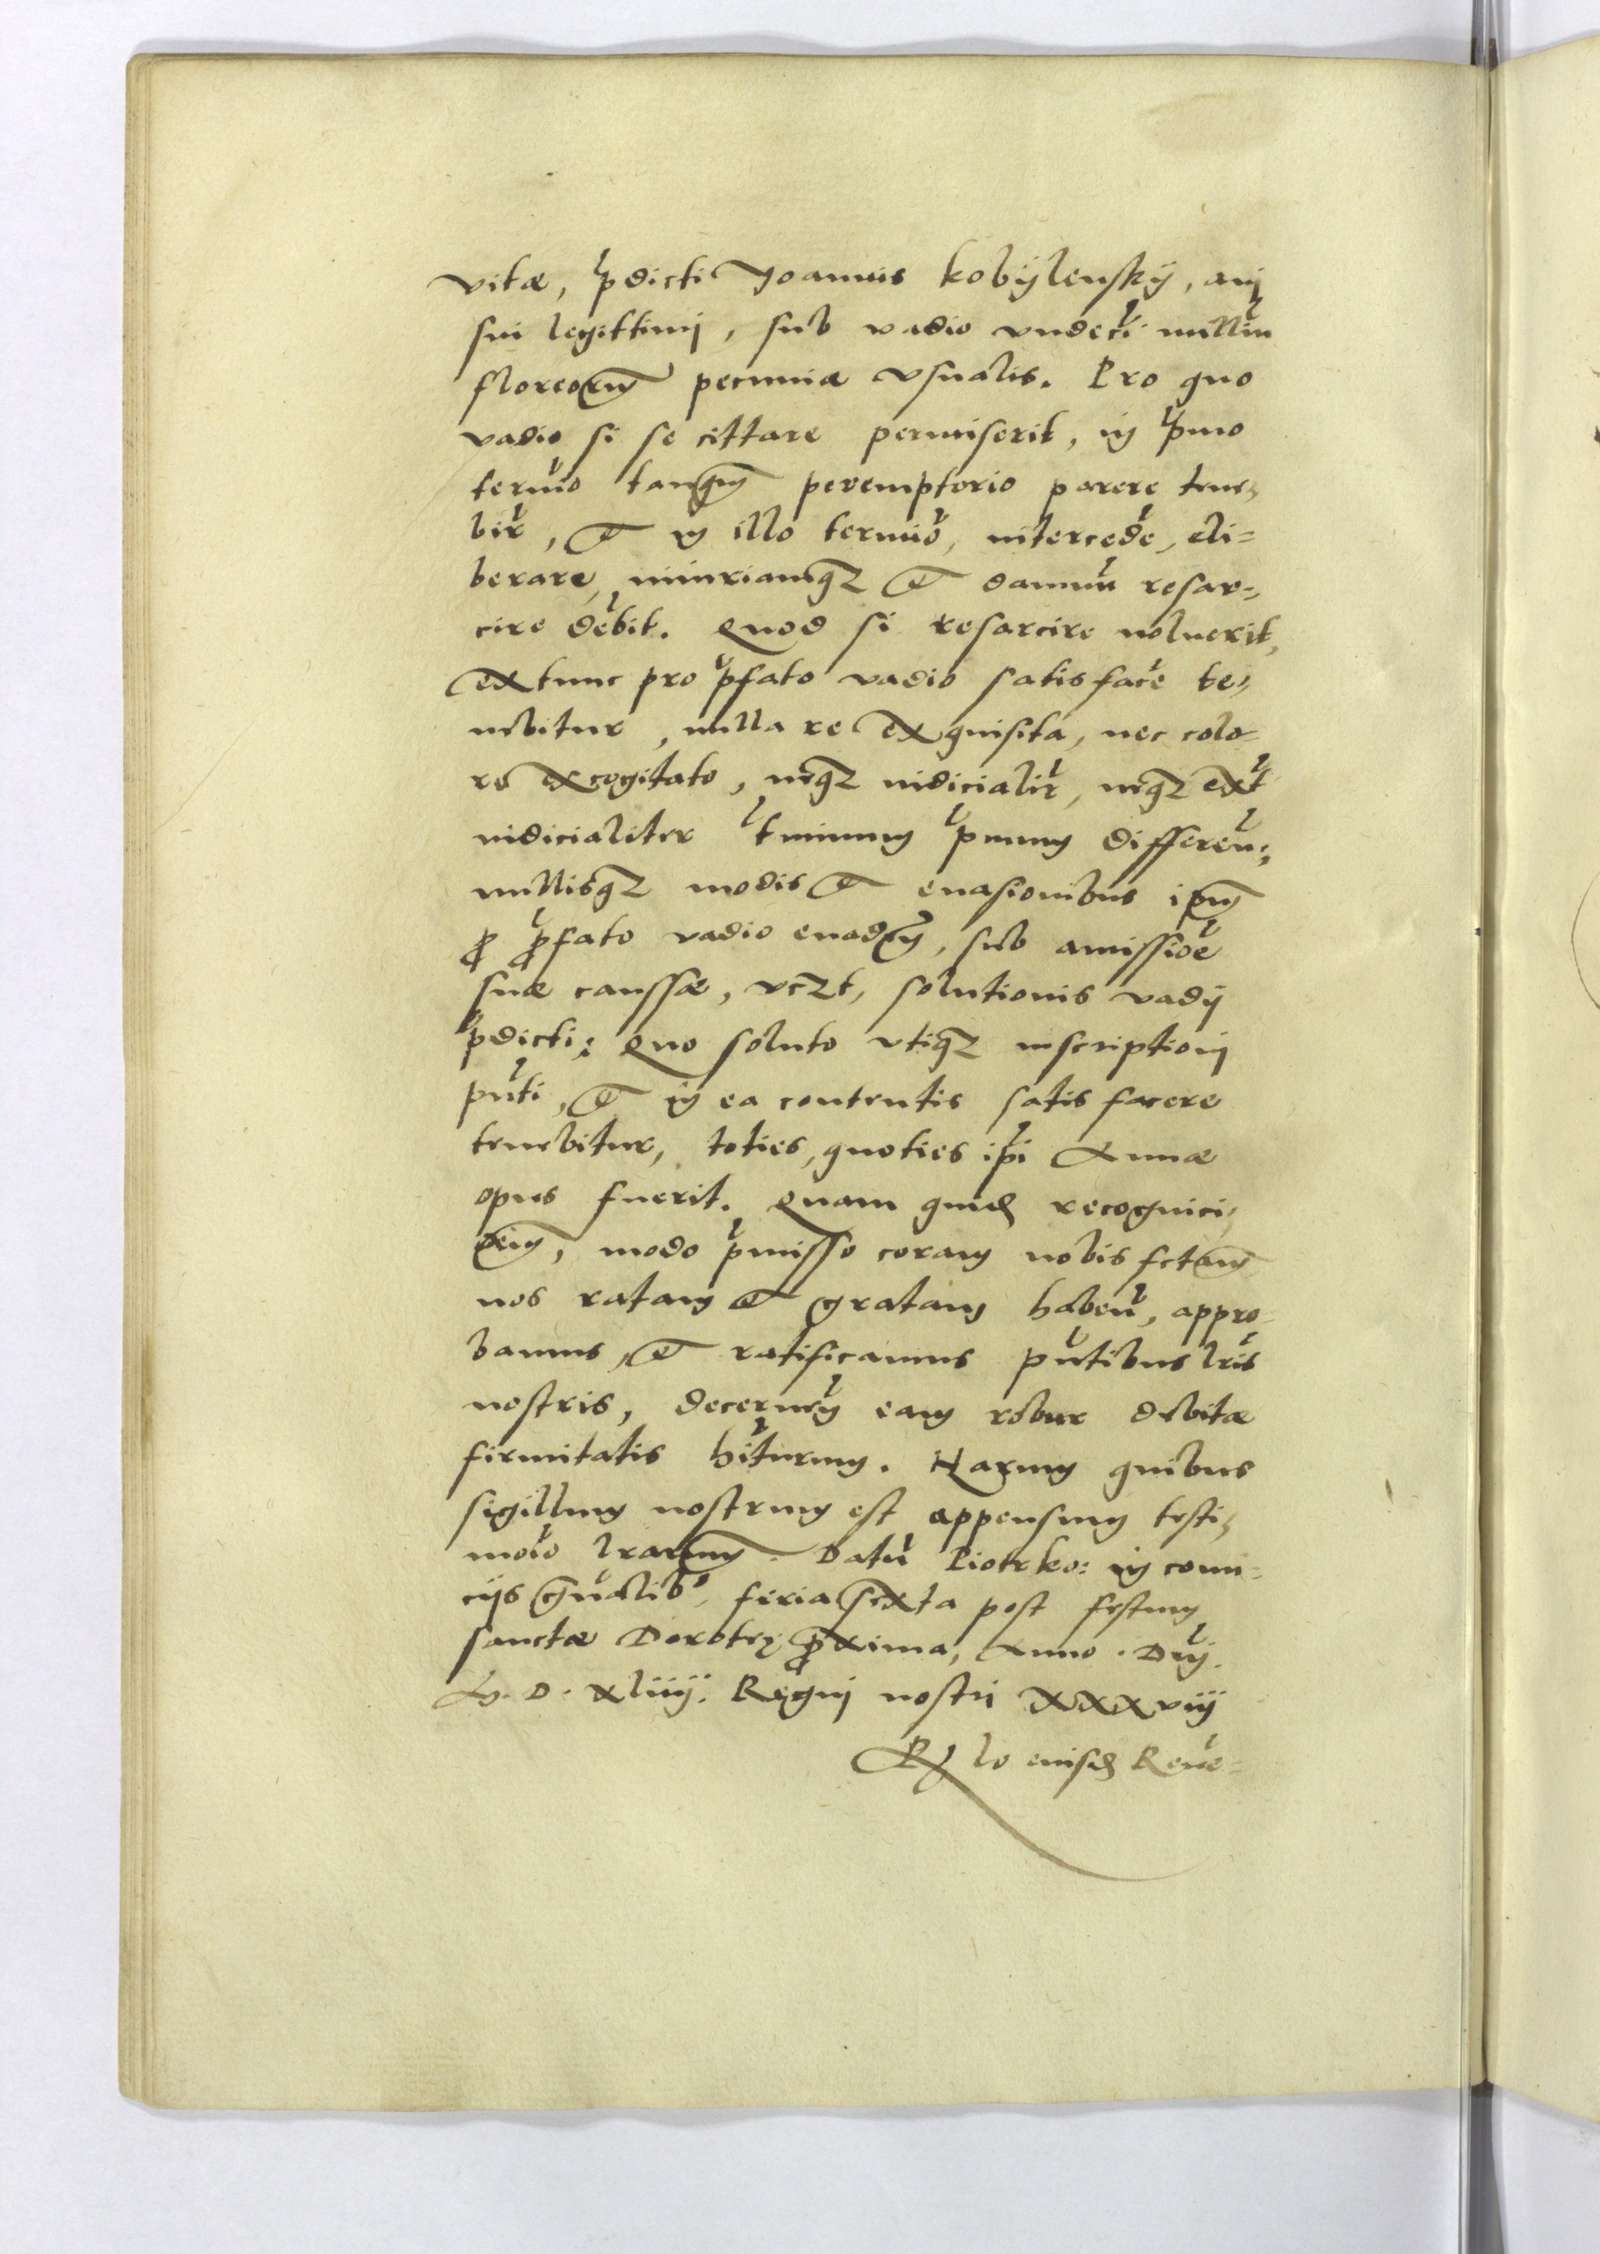 vitæ, pdicti Joannis Kobÿlenskÿ, auj
sui legittimj, sub vadio vndeci milliu
floreorum pecuniæ vsualis. Pro quo
vadio si se cittare permiserit, in pmo
termio tanqm peremptorio parere tene,
bir, et in illo termio, intercede, eli=
berare, iniuriamqz et damnu resar=
cire debit. Quod si resarcire noluerit,
extunc pro pfato vadio satis face te,
nebitur, nulla re exquisita, nec colo
re excogitato, neqz iudicialir, neqz ext
iudicialiter tminum pmum differen,
nullisqz modis et euasionibus ipm
p pfato vadio euadem, sub amissioe
suæ caussæ, vczt, solutionis vadÿ
pdicti: Quo soluto vtiqz inscriptionj
pnti, et in ea contentis satis facere
tenebitur, toties, quoties ipi Annæ
opus fuerit. Quam quid recognici,
oem, modo pmisso coram nobis fctam
nos ratam et gratam haben, appro
bamus, et ratificamus pntibus lris
nostris, decernen eam robur debitæ
firmitatis hituram. Harum quibus
sigillum nostrum est appensum testi,
moio lrarum. Datu Piotrko: in comi=
cÿs gnalib, feria sexta post festum
sanctæ Dorotheę pxima, Anno. Dnj.
M. D. xliiij. Regnj nostri xxxviij
Rlo eiusd Reue=